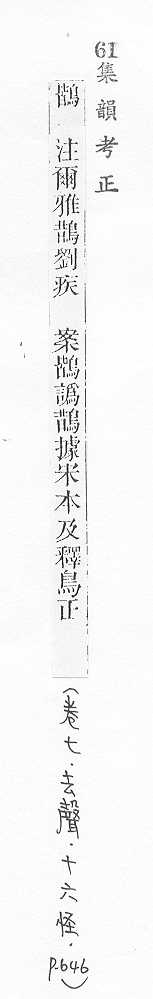 61
集韻考正
注爾雅劉疾 案譌據宋本及釋鳥正
(卷七.去聲.十六怪.
P.646)